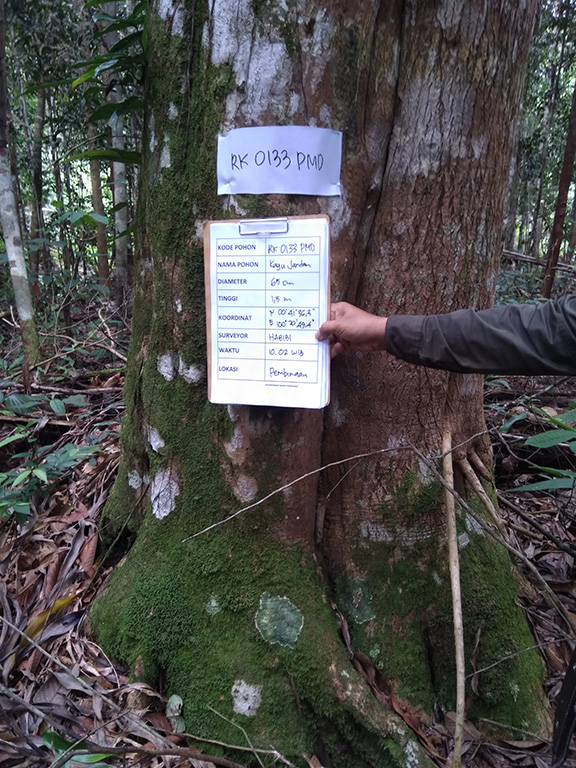 RK 0133 PMD
KODE POHON RK 0133 PMD
NAMA POHON Kayu Jandan
DIAMETER 65 cm
TINGGI 15 m
KOORDINAT N 00°41'
E 100°
SURVEYOR HABIBI
WAKTU 10.02 WIB
LOKASI Pembinaan